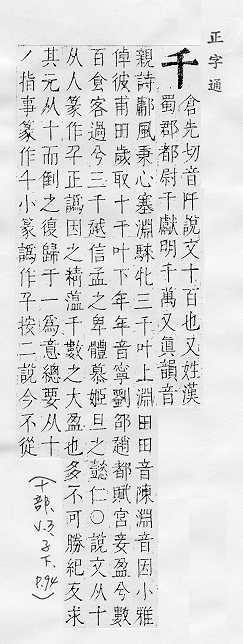 正字通
千
倉先切音阡說文十百也又姓漢
蜀郡都尉千獻明千萬又眞韻音
親詩鄘風秉心塞淵騋牝三千叶上淵田田音陳淵音因小雅
倬彼甫田歲取十千叶下年年音寧劉邵趙都賦宮妾盈兮數
百倉客過兮三千越信孟之卑體慕姬旦之懿仁○說文从十
从人篆作𠦜正譌因之精薀千數之大盈也多不可勝紀叐求
其元从十而倒之復歸于一爲意總要从十
丿指事篆作千小篆譌作𠦜按二說今不從
(十部,
V.3子下,
P.94)